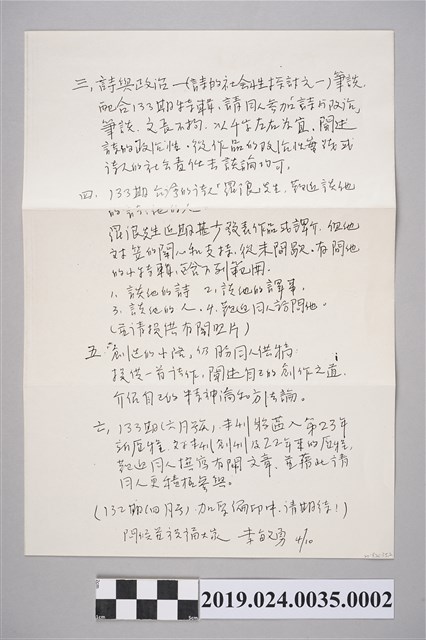 三、詩與政治—(詩的社會性探討之一)筆談.
配合133期特輯,請同人參加詩與政治,
筆談.文長不拘.以千字左右為宜.闡述
詩的政治性.從作品的政治性等踐或
詩人的社會責任去談論均可.
四、133期 的詩人「羅浪先生」歡迎談他
的詩、他的人
羅浪先生近期甚少發表作品或譯介.但他
對笠的關心和支持,從未間歇.有關他
的小特輯,包含下列範圍.
1. 談他的詩 2. 談他的譯事.
3. 談他的人. 4. 歡迎同人訪問他。
(並請提供有關照片)
五、"創造的小陔,仍盼同人供稿:
提供一首詩作,闡述自己的創作之道.
介紹自己的精神論和方法論。
六、133期(六月號),本刊將邁入第23年
新歷程.對本刊創刊及22年來的歷程,
歡迎同人撰寫有關文章.並藉此請
同人更積極參與。
(132期(四月號) 加厚 編印中.請期待!)
問候並祝福大家 李敏勇 4/10
2019.024.0035.0002